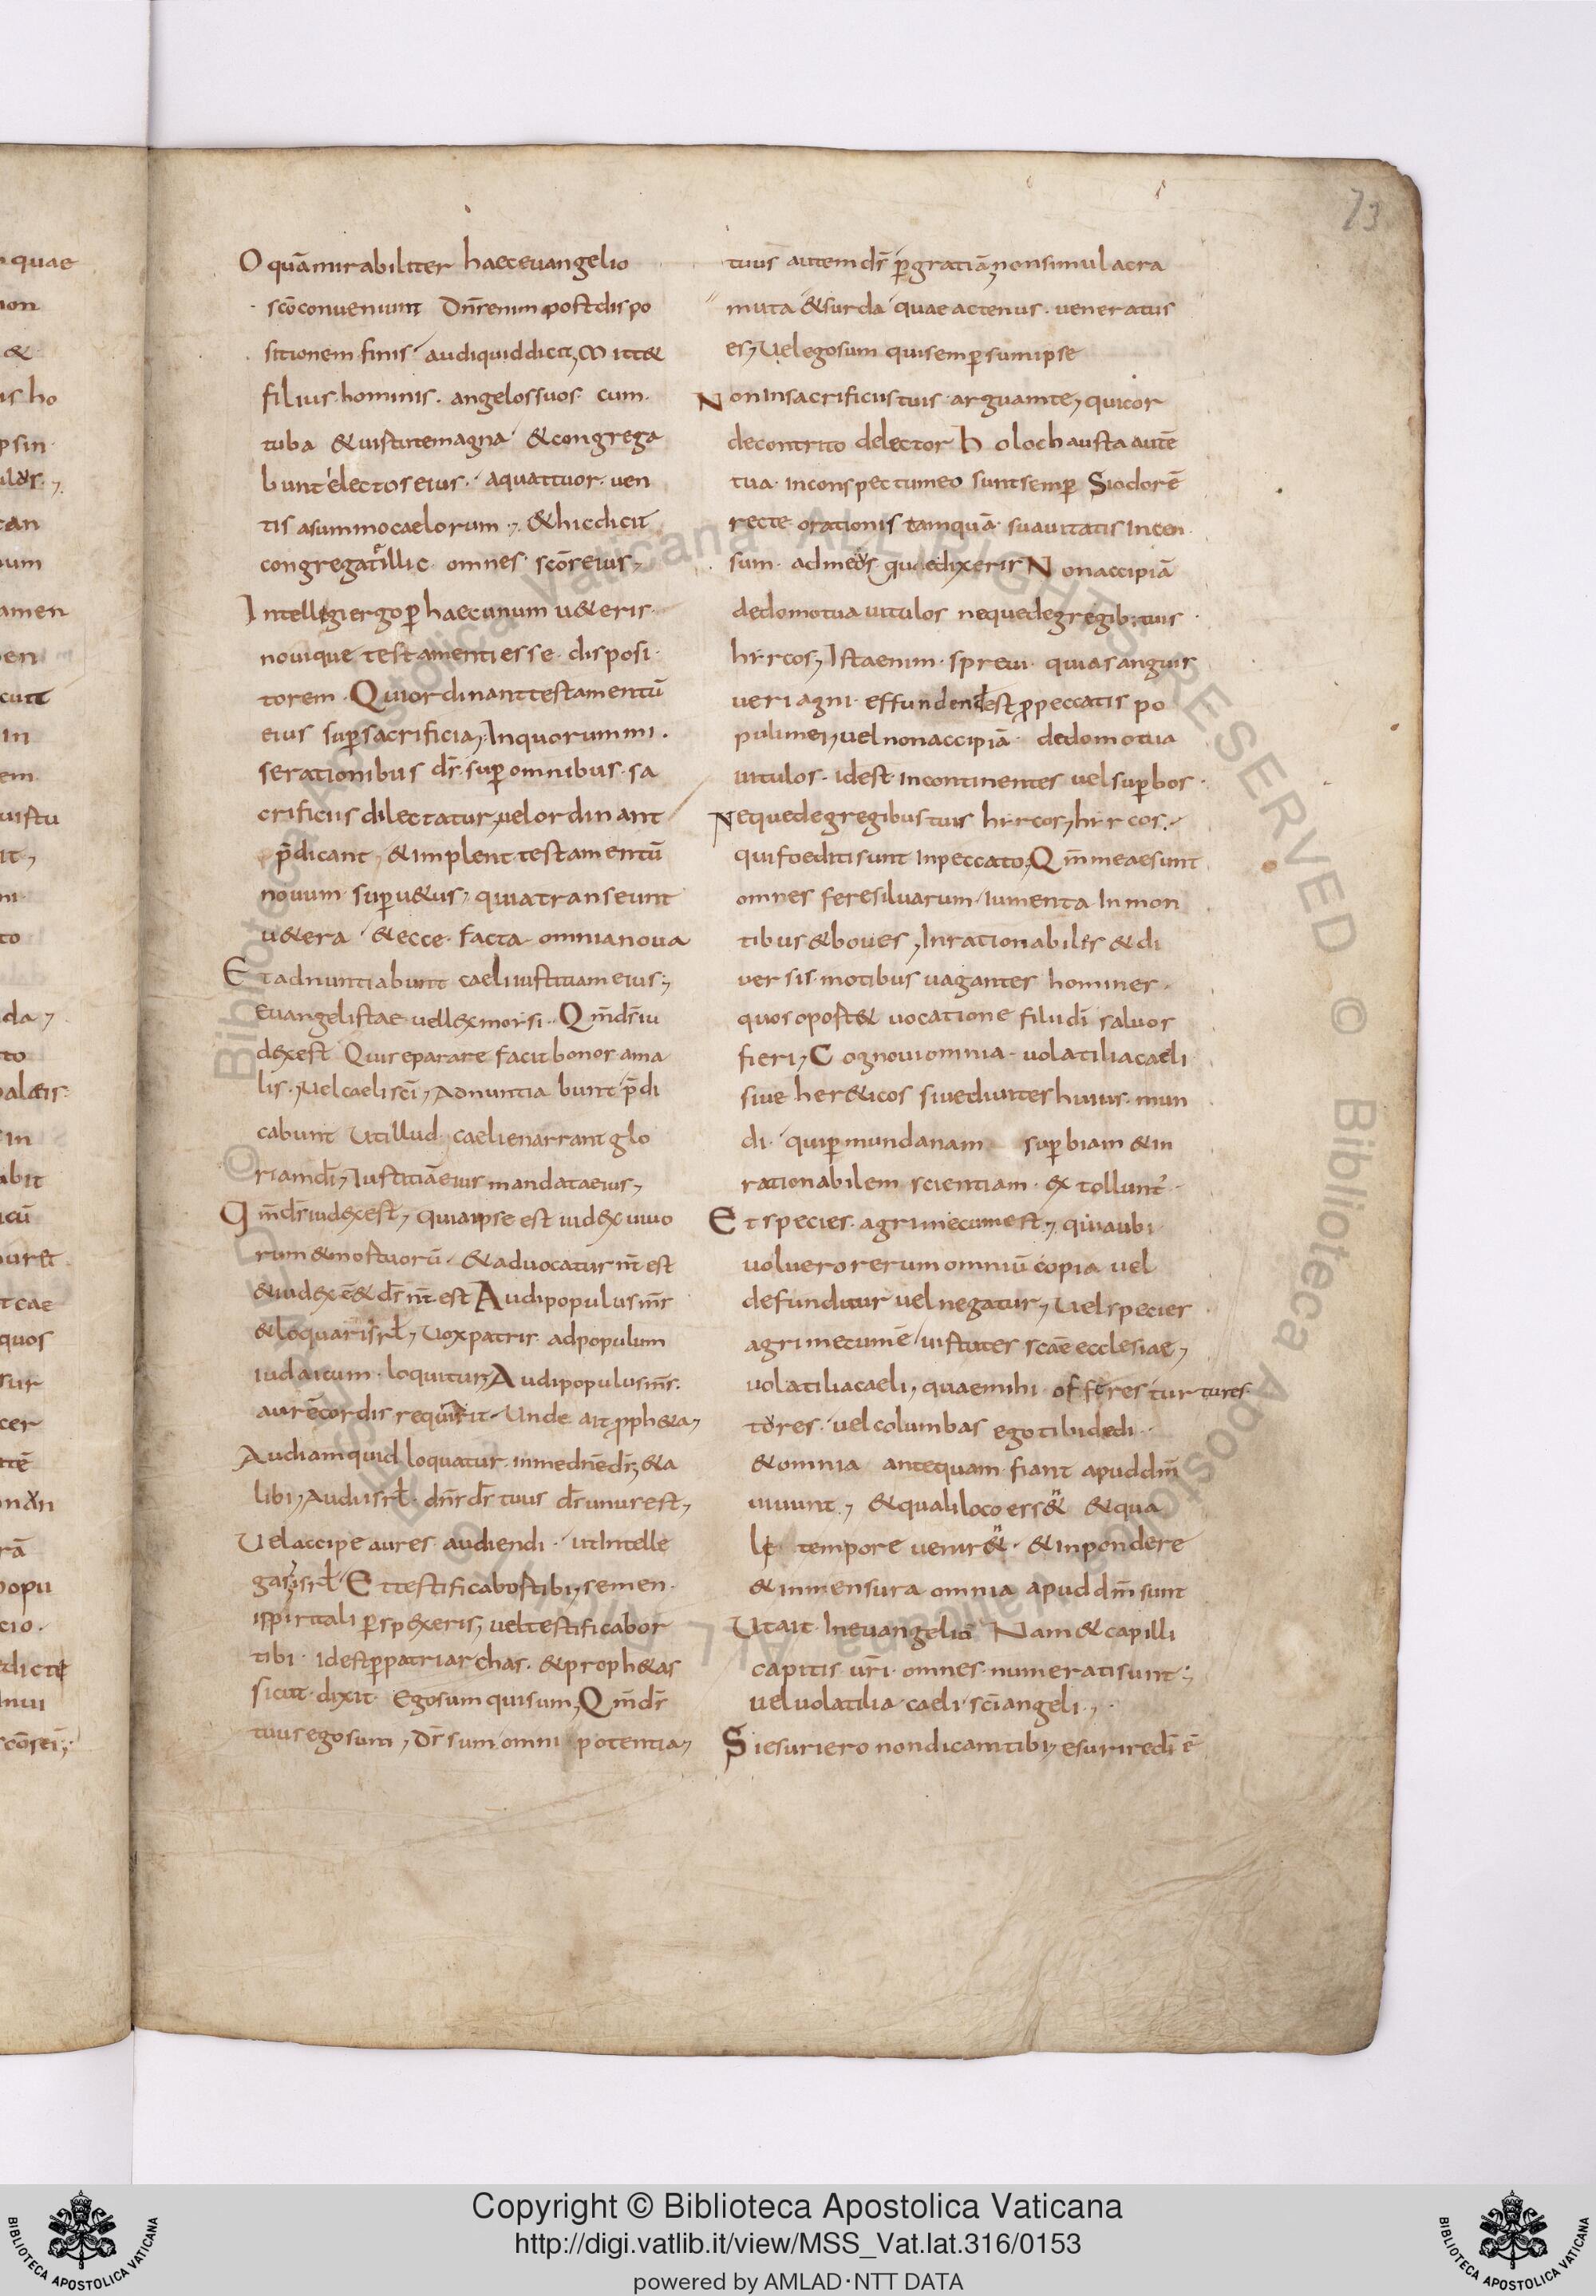 73
O quā mirabiliter haec euangelio
sc̄o conueniunt Dn̄s enim post dispo
sitionem finis audi quid dicit, Mitt&
filius hominis. angelos suos cum.
tuba & uirtute magna & congrega
bunt electos eius. a quattuor uen
tis a summo caelorum. & hic dicit
congregat illic omnes sc̄os eius,
Intellegi ergo p haec unum u&eris
nouique testamenti esse disposi
torem. Qui ordinant testamentū
eius sup sacrificia, In quorum mi.
serationibus ds̄ sup omnibus sa
crificiis dilectatur, uel ordinant
p̄dicant, & implent testamentū
nouum sup u&us, quia transeunt
u&era & ecce facta omnia noua
Et adnuntiabunt caeli iustitiam eius,
euangelistae uel lex morsi. Qm̄ ds̄ iu
dex est Qui separare facit bonos a ma
lis. Uel caeli sc̄i, adnuntiabunt p̄di
cabunt Ut illud caeli enarrant glo
riam dī, Iustitiā eius mandata eius,
Qm̄ ds̄ iudex est, quia ipse est iudex uiuo
rum & mortuorū. & aduocatus nr̄ est
& iudex ē & ds̄ nr̄ est Audi populus ms̄
& loquar isrł, Uox patris ad populum
iudaicum loquitur, Audi populus ms̄.
aurē cordis requirit. Unde ait proph&a,
Audiam quid loquatur in me dn̄e ds̄, & a
libi, Audi isrł. dn̄s ds̄ tuus ds̄ unus est,
Uel accipe aures audiendi. ut intelle
gas, isrł Et testificabor tibi, semen
ispiritali pspexeris, uel testificabor
tibi. idest p patriarchas. & proph&as
sicut dixit Ego sum qui sum, Qm̄ ds̄
tuus ego sum, Ds̄ sum omni potentia,
tuus autem ds̄ p gratiā, non simulacra
muta & surda quae actenus. ueneratus
es, Uel ego sum qui semp sum ipse
Non in sacrificiis tuis arguam te, qui cor
de contrito delector holochausta autē
tua in conspectu meo sunt semp Si odorē
recte orationis tamquā suauitatis incen
sum. ad me quae dixeris Non accipiā
de domo tua uitulos neque de gregib; tuis
hircos, Ista enim spreui quia sanguis
ueri agni effundend est p peccatis po
puli mei, uel non accipiā de domo tua
uitulos. idest incontinentes uel supbos
Neque de gregibus tuis hircos, hircos.
qui foediti sunt in peccato, Qm̄ meae sunt
omnes fere siluarum iumenta In mon
tibus & boues, Inrationabiles & di
uersis motibus uagantes homines.
quos opost& uocatione filii dī saluos
fieri, Cognoui omnia uolatilia caeli
siue her&icos siue diuites huius mun
di. qui p mundanam supbiam & in
rationabilem scientiam. extollunt
Et species agri mecum est, quia ubi
uoluero rerum omniū copia uel
defunditur uel negatur, Uel species
agri mecum ē uirtutes scāe ecclesiae,
uolatilia caeli, quae mihi offeres tur tures
tores uel columbas ego tibi dedi.
& omnia antequam fiant apud dm̄
uiuunt, & quali loco ess& & qua
le tempore uenir&. & in pondere
& in mensura omnia apud dm̄ sunt
Ut ait In euangeliō Nam & capilli
capitis ur̄i omnes numerati sunt;
uel uolatilia caeli sc̄i angeli.,
Si esuriero non dicam tibi, esurire dī ē
Copyright © Biblioteca Apostolica Vaticana
http://digi.vatlib.it/view/MSS_Vat.lat.316/0153
powered by AMLAD·NTT DATA
BIBLIOTECA APOSTOLICA VATICANA
BIBLIOTECA APOSTOLICA VATICANA